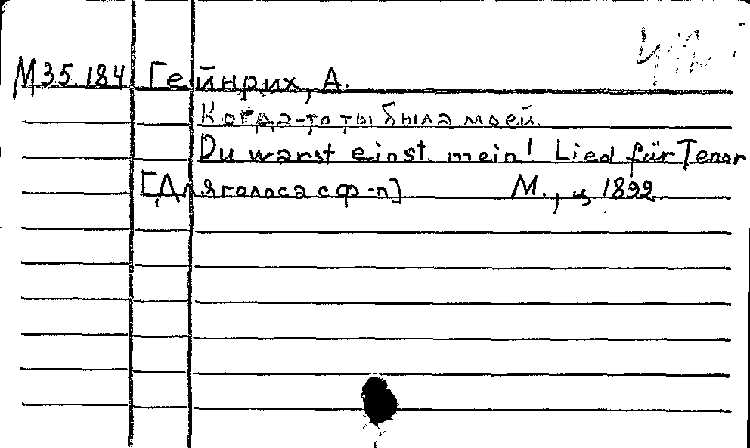 М35.184 Гейнрих, А.
Когда-то ты была моей.
Du warst einst mein! Lied für Tenor
[Для голоса с ф-п] М., ц. 1892